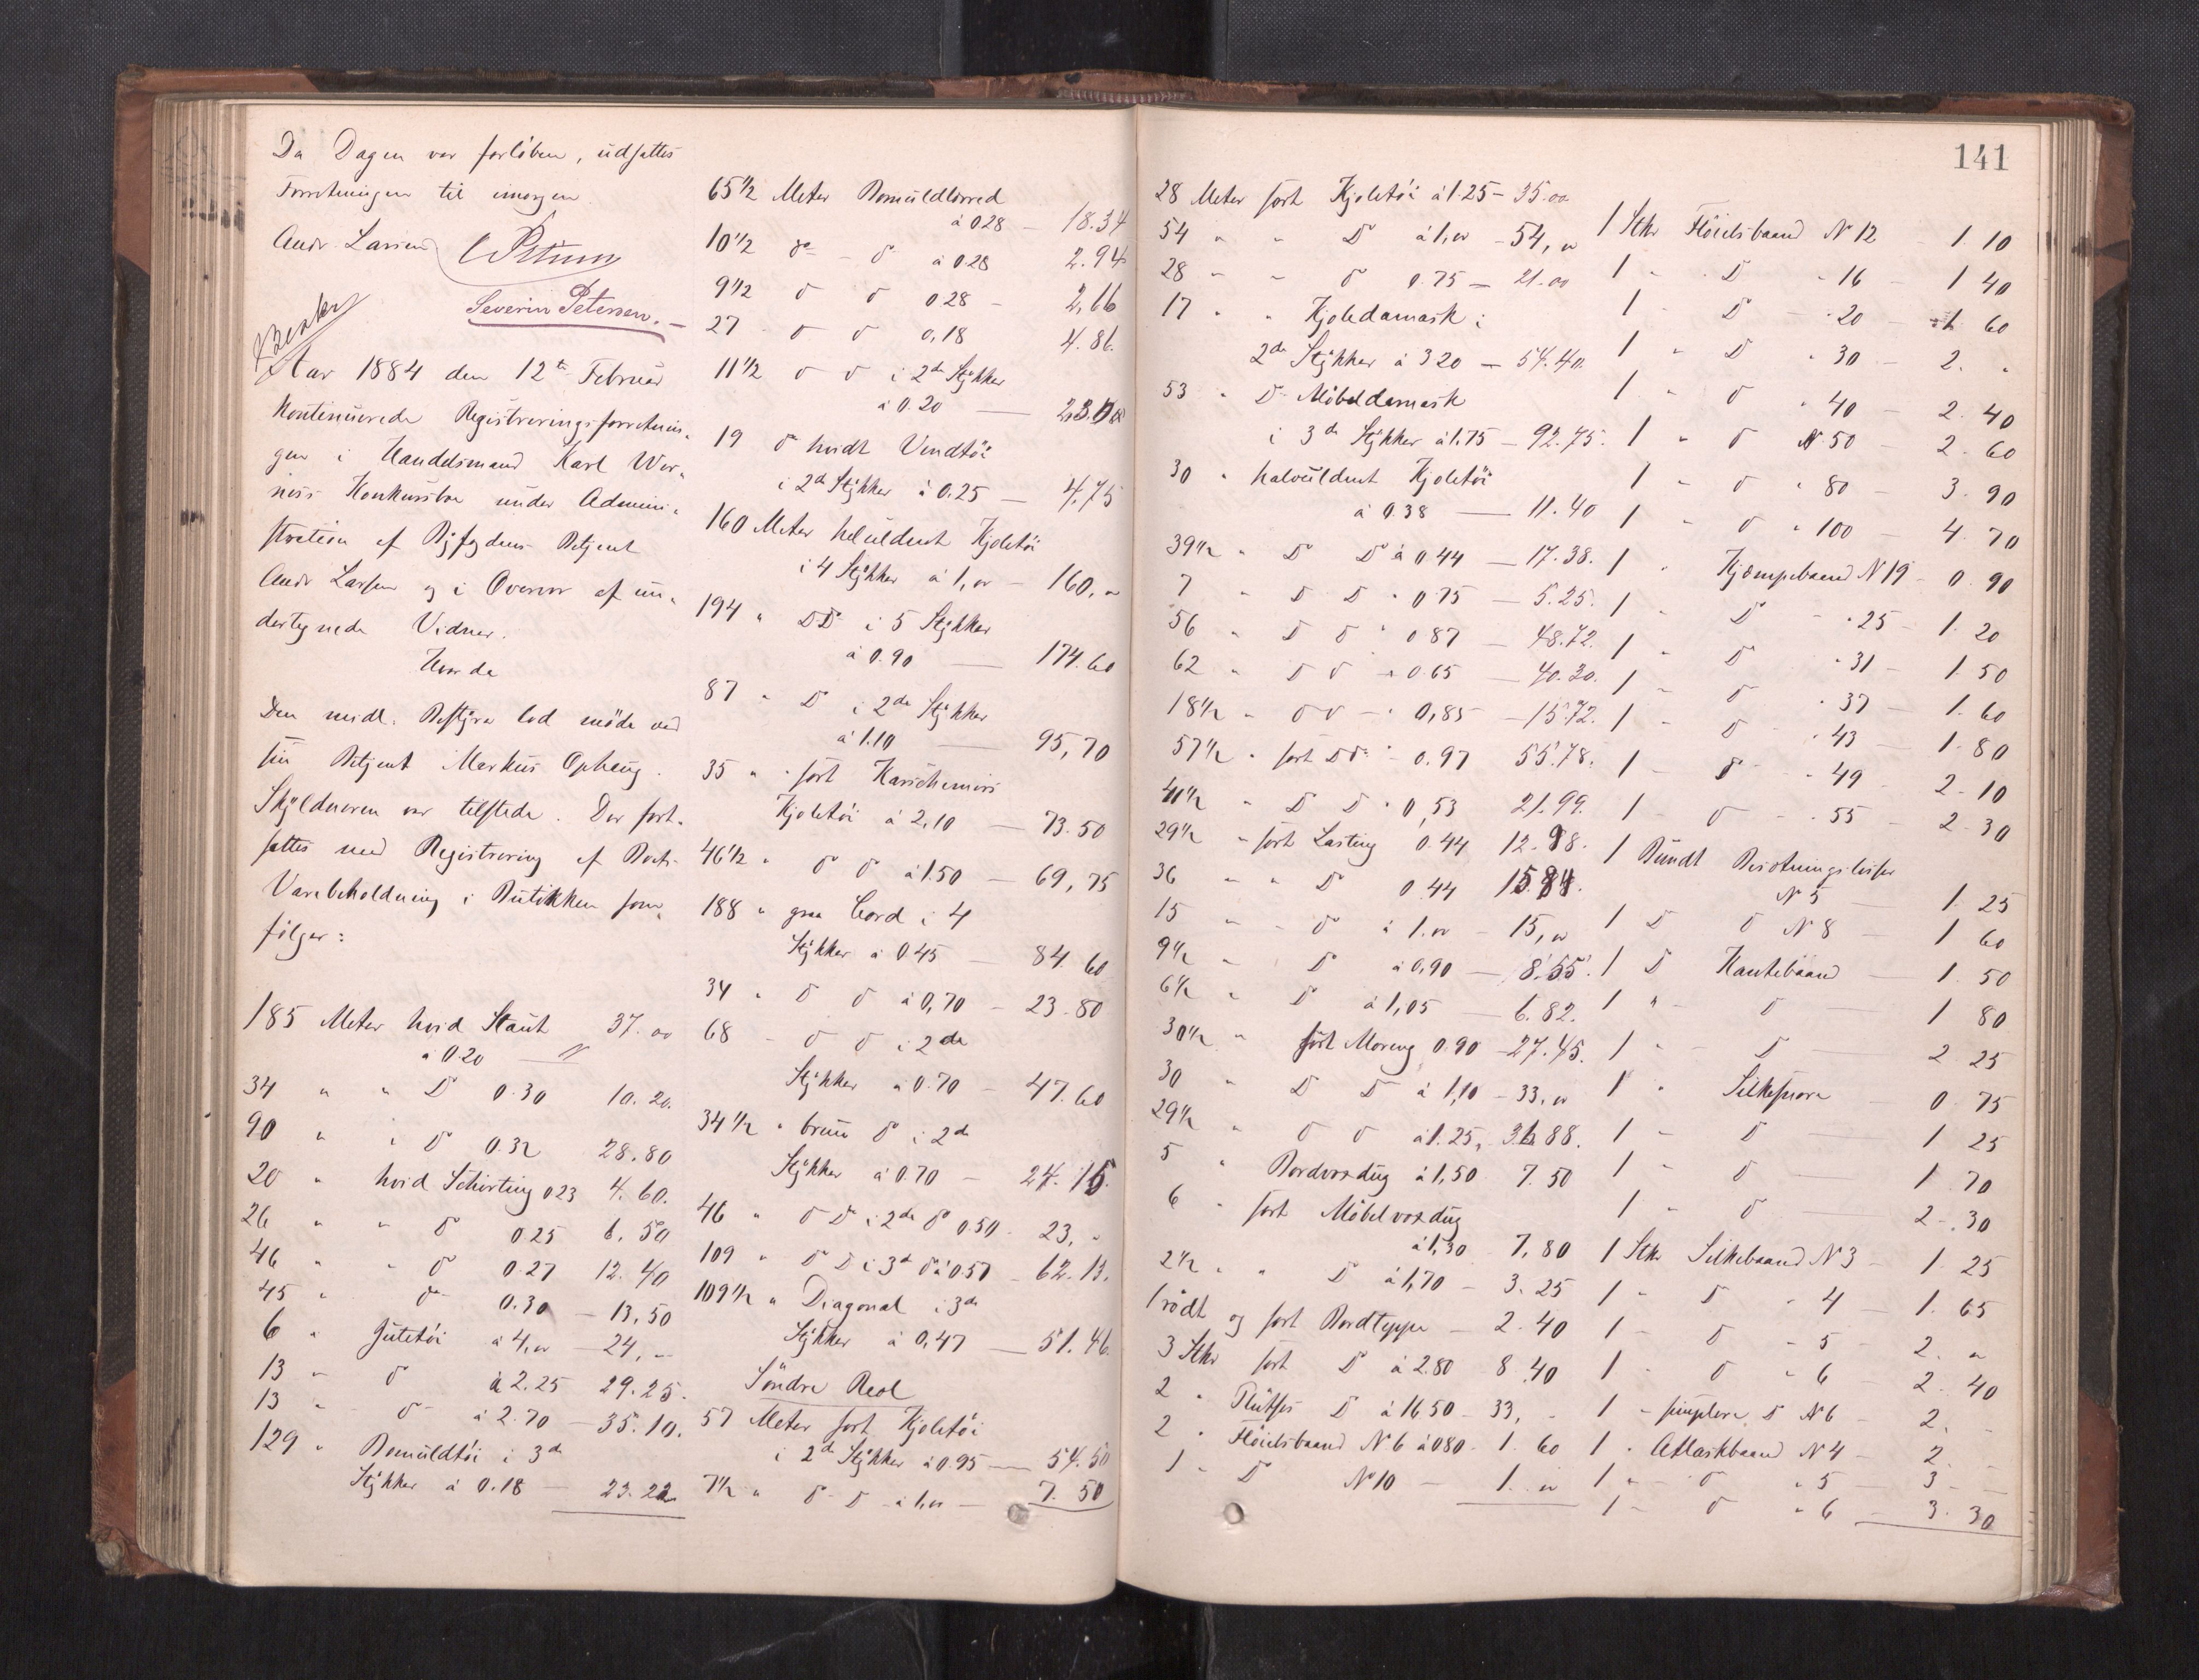 Da Dagen var forløben, udsattes
Forretningen til imorgen.
Andr. Larsen
Severin Petersen.
Aar 1884 den 12te Februar
kontinuerede Registreringsforretnin-
gen i Handelsmand Karl Wer-
ners Konkursbo under Admini-
stration af Byfogdens Betjent
Andr Larsen og i Overvær af un-
dertegnede Vidner.
Hvorda
Den midl. Bestyrer lod møde ved
sin Betjent Markus Opheug.
Skyldneren var tilstede. Der fort-
sattes med Registrering af Boets
Varebeholdning i Butikken som
følger:
185 Meter hvid Staut 37.00
à 0.20 — "
34 " " Do 0.30 10.20.
90 " " Do 0.32 28.80
20 " hvid Schirting 0 23 4.60.
26 " " do 0.25 6.50
46 " " do 0.27 12.40
45 " do 0.30 — 13,50
6 " Jutetøi à 4,00 — 24,"
13 " do à 2.25 29.25.
13 " do à 2.70 — 35.10.
129 " Bomuldtøi i 3de
Stykker à 0.18 — 23.22
65 1/2 Meter Bomuldlærred
à 0 28 — 18.34
10 1/2 do - do à 0 28 2.94
9 1/2 do do 0 28 - 2,66
27 - do do 0,18 4.86.
11 1/2 do do i 2de Stykker
à 0.20 — 2.30
19 do hvidt Vendtøi
i 2de Stykker à 0.25 — 4.75
160 Meter heluldent Kjoletøi
i 4 Stykker à 1,00 — 160,"
194 " Do Do i 5 Stykker
à 0.90 — 174.60
87 " Do i 2de Stykker
à 1.10 — 95,70
35 " sort
Kjoletøi à 2,10 — 73.50
46 1/2 " do do à 1.50 — 69,75
188 " graa Cord i 4
Stykker à 0 45 — 84.60
34 " do do à 0,70 — 23.80
68 - do do i 2de
Stykker à 0.70 — 47.60
34 1/2 " brun do i 2de
Stykker à 0.70 — 24.15.
46 " do Do i 2de do 0.50 - 23,"
109 " do Do i 3de do à 0.57 - 62.13.
109 1/2 " Diagonal i 3de
Stykker à 0,47 — 51.46.
Søndre Reol
57 Meter sort Kjoletøi
i 2de Stykker à 0.95 — 54.50
7 1/2 " do - do - à 1,00 — 7.50
141
28 Meter sort Kjoletøi à 1.25 — 35.00
54 " " Do à 1,00 — 54,00
28 " " do 0.75 — 21.00
17 " " Kjoledamask i
2de Stykker à 3 20 — 54.40.
53 " Do Møbeldamask
i 3de Stykker à 1.75 — 92.75.
30 " halvuldent Kjoletøi
à 0.38 — 11.40
39 1/2 " Do Do à 0 44 — 17.38.
7 " Do Do " 0 75 — 5.25.
56 " Do do " 0 87 — 48.72.
62 " Do do " 0 65 — 40.30.
18 1/2 " do do " 0,85 — 15.72.
57 1/2 " sort Do do " 0.97 55.78.
41 1/2 " Do Do " 0,53 21.99.
29 1/2 " sort Lasting 0.44 12.98.
36 " " Do 0 44 15.84.
15 " " do à 1.00 — 15,00
9 1/2 " Do à 0,90 — 8.55.
6 1/2 " Do à 1,05 — 6.82.
30 1/2 " sort Moreng 0.90 — 27.45.
30 " Do Do à 1,10 — 33,00
29 1/2 " do do à 1.25, 36 88.
5 " Bordvoxdug à 1,50 7.50
6 " sort Møbelvoxdug
à 1,30 7,80
2 1/2 " " Do à 1,70 — 3.25
1 rødt og sort Bordteppe — 2.40
3 Stkr sort Do à 2.80 8.40
2 " Do à 16 50 — 33,"
2 " Fløielsbaand No 6 à 0 80 - 1.60
1 " Do No 10 — 1.00
1 Stkr Fløielsbaand No 12 — 1.10
1 " Do " 16 — 1 40
1 " Do " 20 — 1 60
1 " Do " 30 — 2. "
1 " do " 40 — 2.40
1 " do No 50 — 2.60
1 " do " 80 — 3.90
1 " do " 100 — 4.70
1 " Kjømpebaand No 19 - 0.90
1 " Do " 25 - 1.20
1 " Do " 31 — 1.50
1 " do " 37 — 1.60
1 " do " 43 — 1.80
1 " do " 49 — 2.10
1 " do " 55 — 2.30
1 Bundt Besætningslisser
No 5 — 1.25
1 Do do No 8 — 1 60
1 Do Kantebaand — 1.50
1 " do — 1 80
1 " Do — 2 25
1 " Silkesnore — 0 75
1 " Do — 1 25
1 " do — 1 70
1 " do — 2.30
1 Stk Silkebaand No 3 — 1.25
1 " Do " 4 — 1.65
1 " do " 5 — 2. "
1 " do " 6 — 2.40
1 " simplere Do No 6 — 2. -
1 " Atlaskbaand No 4 — 2. -
1 " do " 5 — 3 -
1 " do " 6 — 3.30